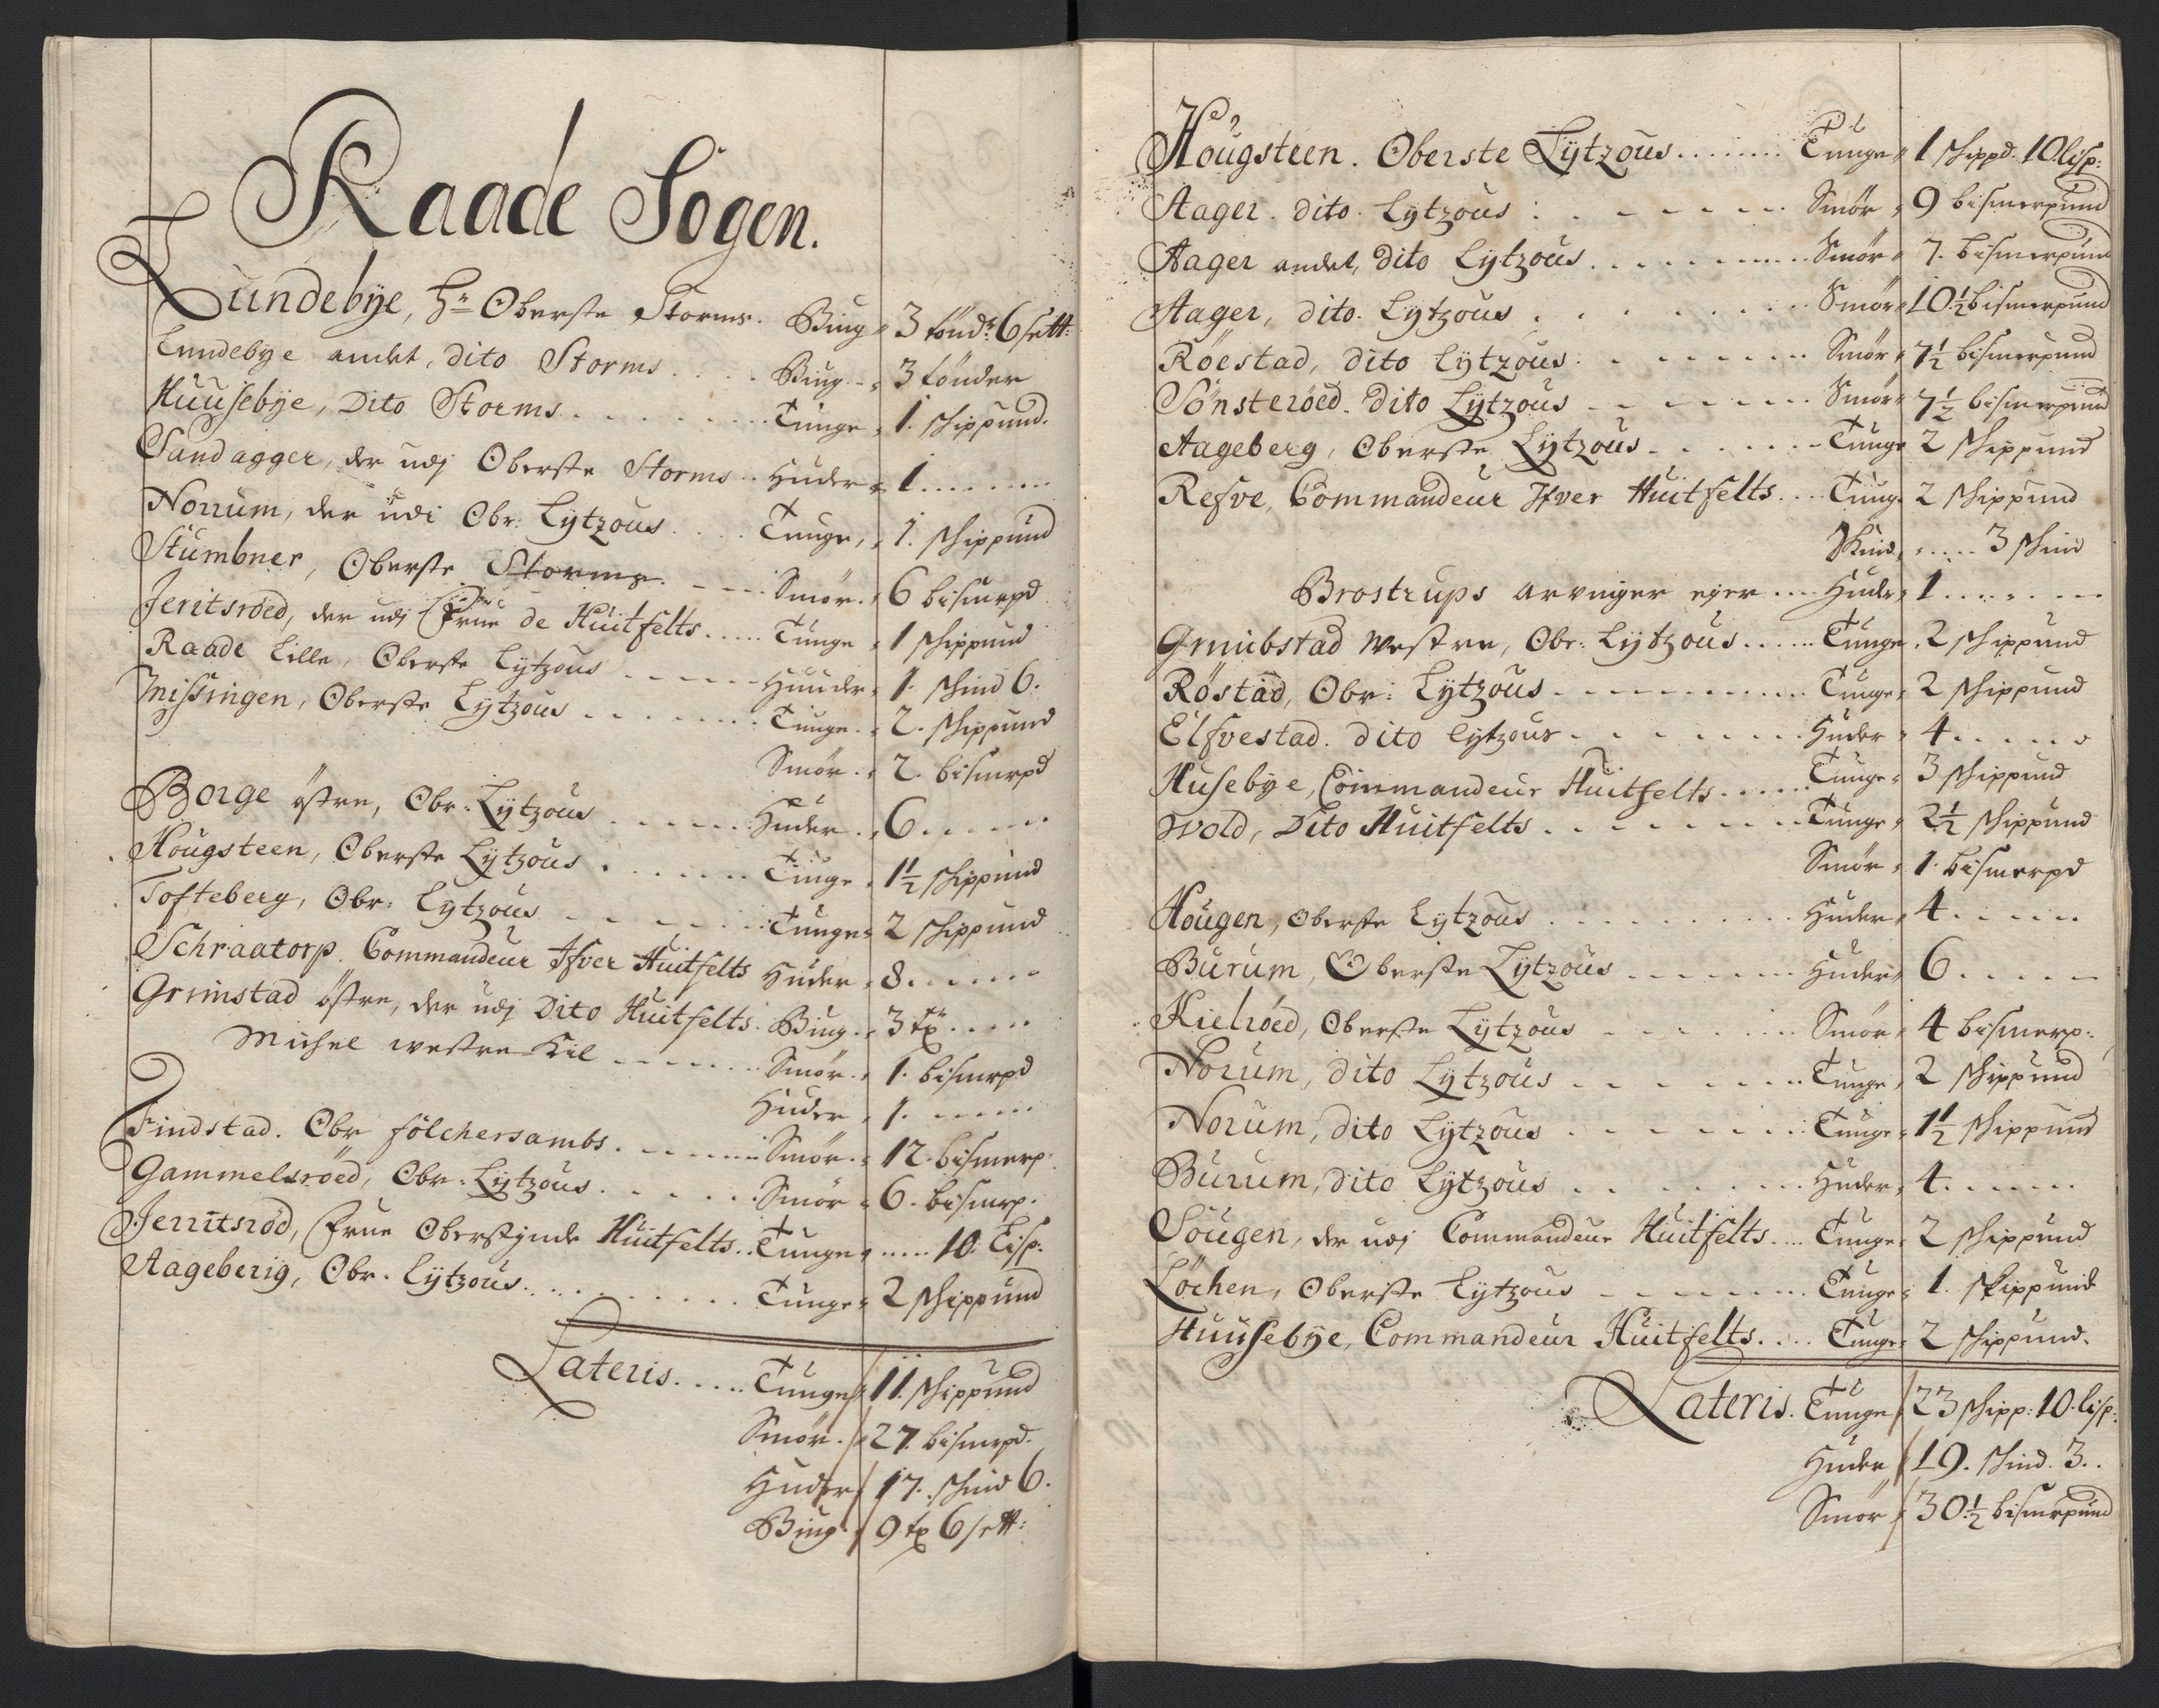 Raade Sogen.
Lundebÿe, Hr Oberste Storms. Biug 3 tönd: 6 sett:
Lundebÿe andet, dito Storms.... Biug 3 tönder
Huusebÿe, Dito Storms........ Tunge 1. schippund.
Sandagger, der udj Oberste Storms.. Huder 1.......
Norrum, der udi Obr: Lÿtzous.... Tunge, 1. schippund
Stumbner, Oberste Storms. --- Smör. 6 bismrpd
Jeritsröed, der udj Frue de Huitfelts..... Tunge 1 schippund
Raade Lille, Oberste Lÿtzous ------ Huuder 1. schind 6.
Missingen, Oberste Lÿtzous........ Tunge. 2. schippund
Smör. 2. bismrpd
Borge östre, Obr: Lÿtzous ...... Huder. 6......
Hougsteen, Oberste Lÿtzous....... Tunge 1½ schippund
Tofteberg, Obr: Lÿtzous ------ Tunge 2 schippund
Schraatorp. Commandeur Ifver Huitfelts Huder 8......
Grimstad östre, der udj Dito Huitfelts. Biug. 3 tr.....
Michel westre Kil ------- Smör. 1. bismrpd
Huder 1. -----
Findstad. Obr fölchersambs. ------ Smör. 12. bismerp:
Gammelsröed, Obr. Lÿtzous....... Smör 6. bismrp.
Jerritsröd, Frue Oberstinde Huitfelts.. Tunge ..... 10. Lisp.
Aageberig, Obr. Lÿtzous.......... Tunge 2 schippund
Lateris..... Tunge 11. schippund
Smör. 27. bismrpd.
Huder 17. schind 6.
Biug 9 tr 6 sett:
Hougsteen. Oberste Lÿtzous........ Tunge 1 schippd. 10. lisp:
Aager. dito. Lÿtzous : ------ Smör 9 bismerpund
Aager andet, dito Lÿtzous......... Smör 7. bismerpund
Aager, dito. Lÿtzous ........ Smör 10½ bismerpund
Röestad, dito Lÿtzous. ------- Smör 7½ bismerpund
Sönsteröed. dito Lÿtzous ------- Smör 7½ bismerpund
Aageberg, Oberste Lÿtzous....... Tunge 2 schippund
Refve, Commandeur Ifver Huitfelts.... Tunge 2 schippund
Skind, ..... 3 schind
Brostrups arvinger eger.... Huder 1.......
Grimbstad westre, Obr: Lÿtzous...... Tunge 2 schippund
Röstad, Obr: Lÿtzous.---------- Tunge 2 schippund
Elfvestad. dito Lÿtzous-------- Huder 4......
Husebye, Commandeur Huitfelts..... Tunge 3 schippund
Wold, Dito Huitfelts......... Tunge 2½ schippund
Smör 1. bismerpd
Hougen, Oberste Lÿtzous .......... Huder 4......
Burum, Oberste Lÿtzous ------- Huder 6.....
Kielröed, Oberste Lÿtzous ------ Smör 4 bismerp:
Norum, dito Lÿtzous ------- Tunge 2 schippund
Norum, dito Lÿtzous ------- Tunge 1½ schippund
Burum, dito Lÿtzous ........ Huder 4......
Sougen, der udj Commandeur Huitfelts.... Tunge 2 schippund
Löchen, Oberste Lÿtzous ------- Tunge 1. skippund
Huusebÿe, Commandeur Huitfelts..... Tunge 2 schippund.
Lateris. Tunge 23 schipp: 10. lisp:
Huder 19. schind. 3..
Smör 30½ bismrpund